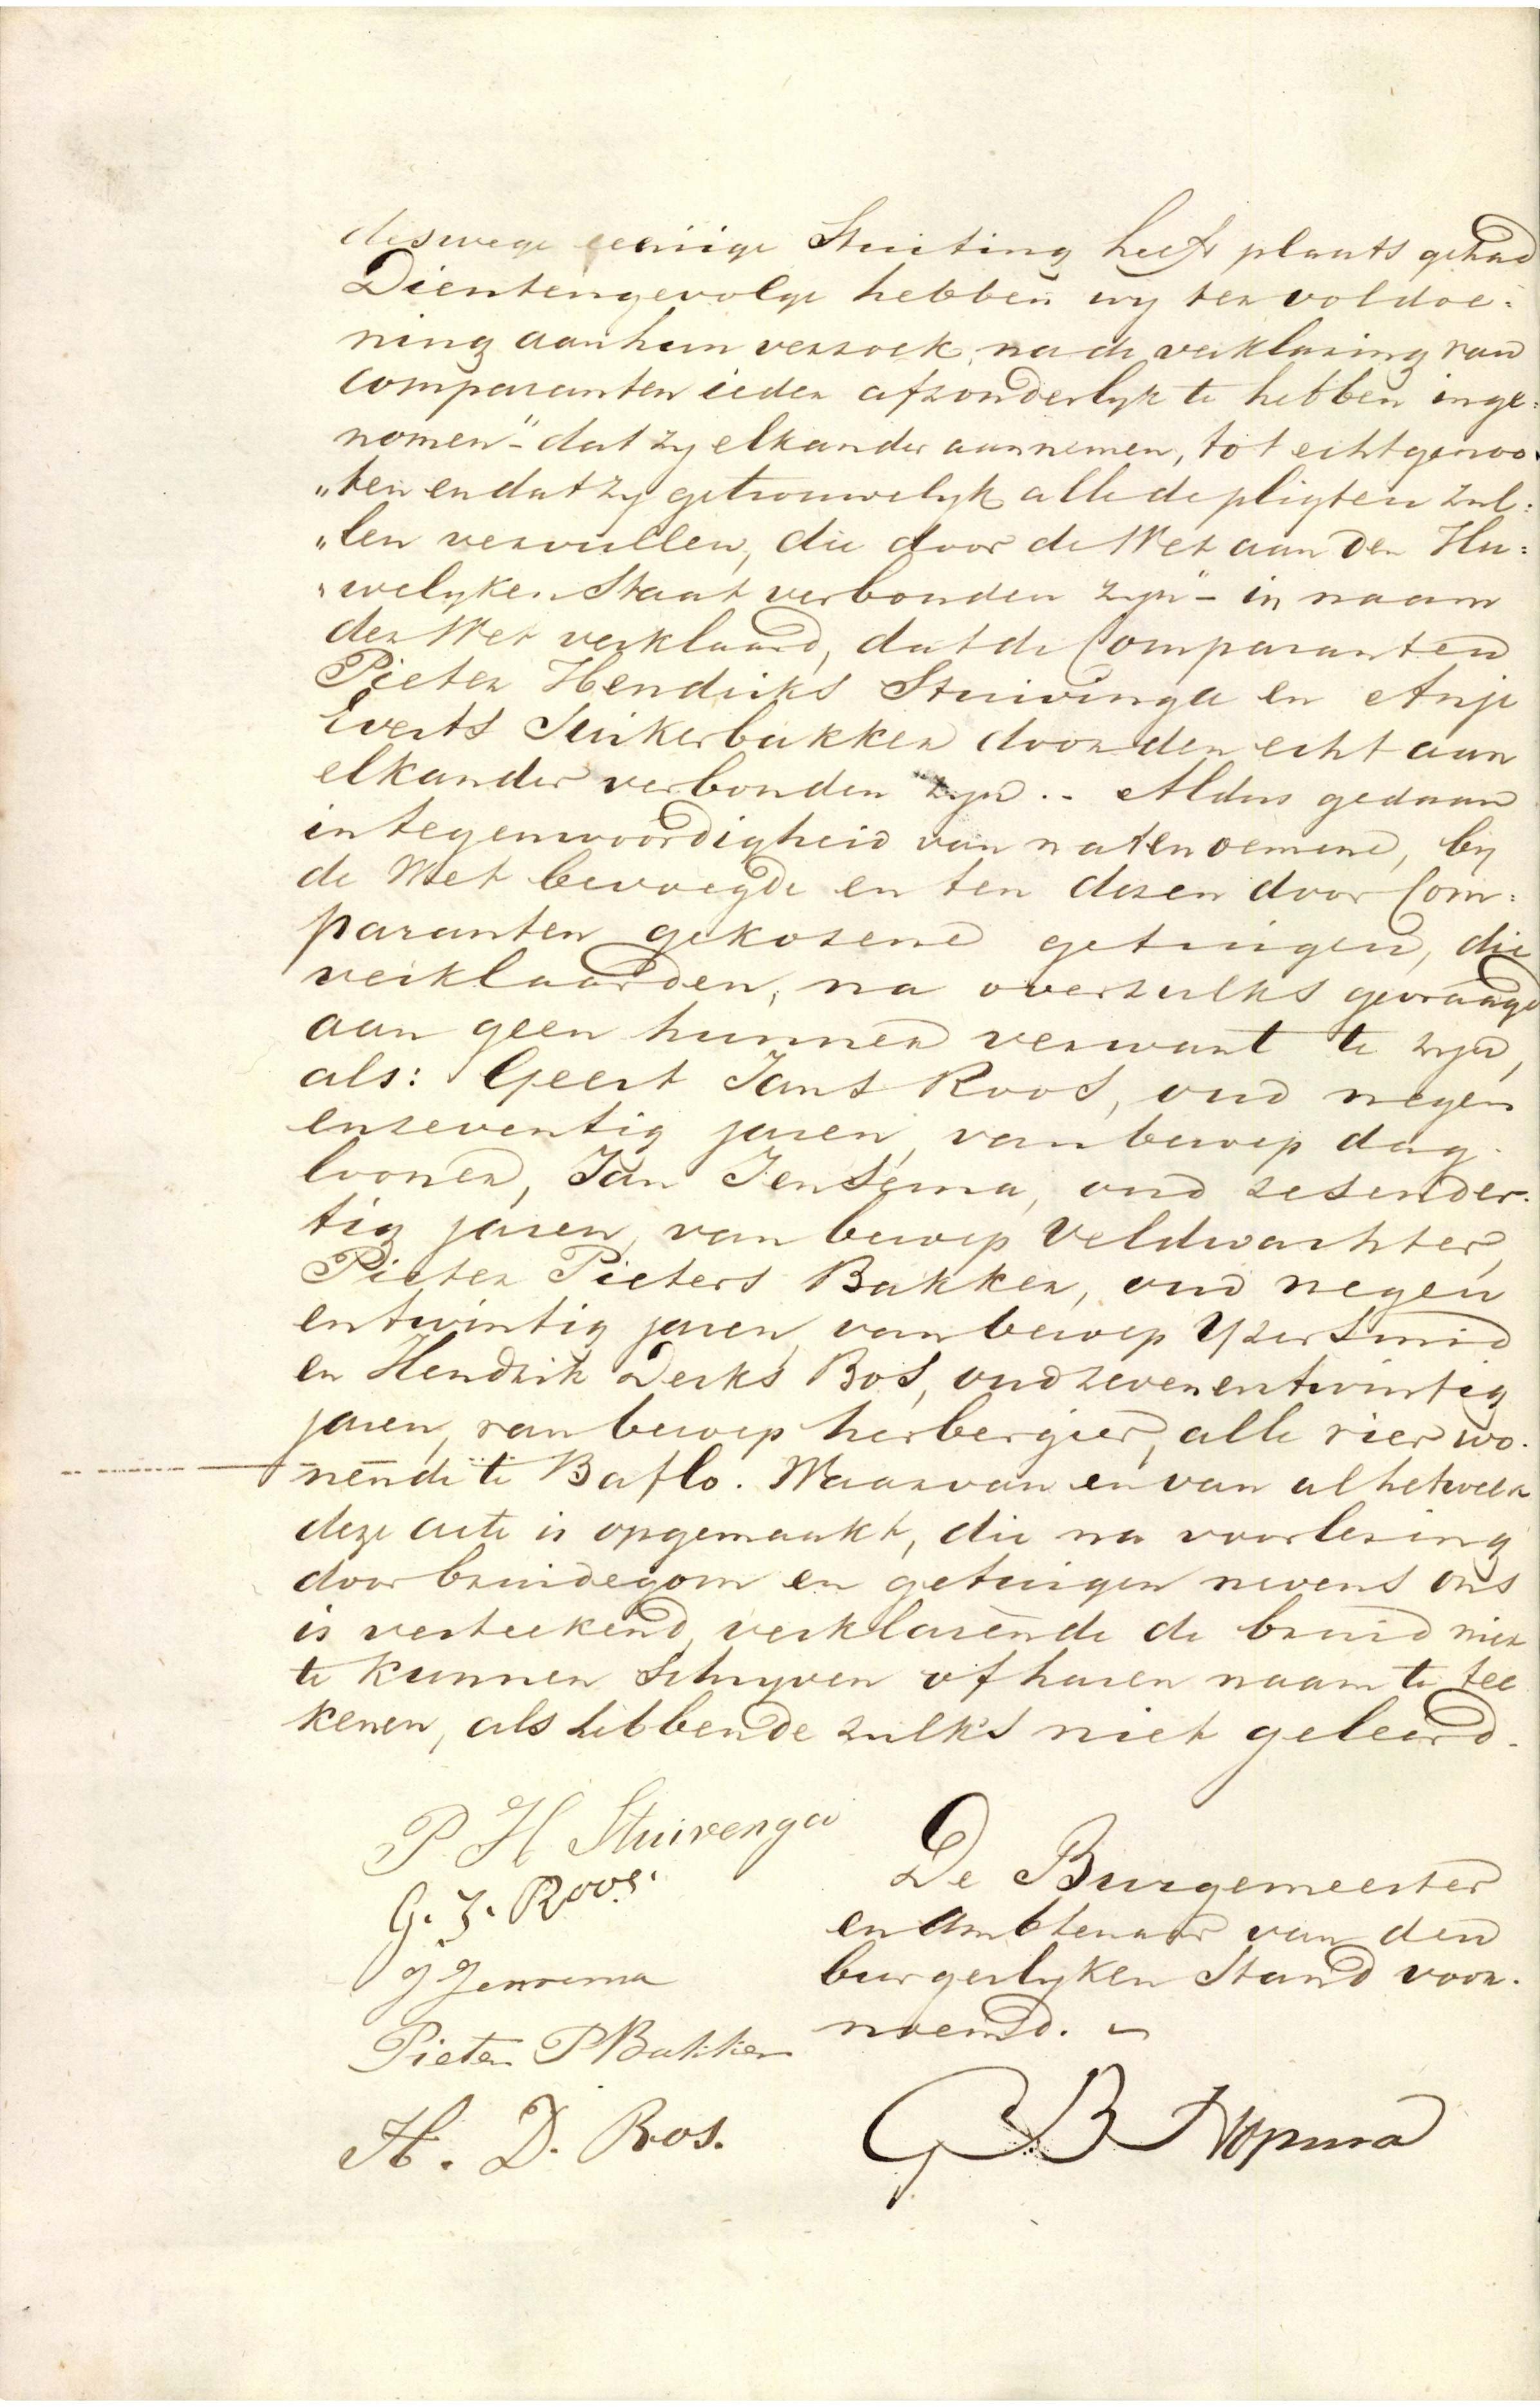 deswege eeniige Stuiting heeft plaats gehad
Dientengevolge hebben wy ter voldoe:
ning aan hun verzoek, na de verklaring van
Comparanten ieder afzonderlyk te hebben inge:
nomen "- dat zy elkander aannemen, tot echtgenoo
"ten en dat zy getrouwelyk alle de pligten zul:
"len vervullen, die door de Wet aan den Hu:
"welyken Staat verbonden zyn" - in naam
der Wet verklaard, dat de Comparanten
Pieter Hendriks Stuivinga en Anje
Everts Suikerbakker door den echt aan
elkander verbonden zyn. - Aldus gedaan
in tegenwoordigheid van natenoemene, by
de Wet bevoegde en ten dezen door Com:
paranten gekozene getuigen, die
verklaarden, na over zulks gevraagd
aan geen hunner verwant te zyn,
als: Geert Jans Roos, oud negen
enzeventig jaren, van beroep dag-
looner, Jan Jensema, oud zesender-
tig jaren, van beroep Veldwachter,
Pieter Pieters Bakker, oud negen
entwintig jaren, van beroep Yzersmid
en Hendrik Derks Bos, oud zevenentwintig
jaren, van beroep herbergier, alle vier wo-
nende te Baflo. Waarvan en van al hetwelk
deze acte is opgemaakt, die na voorlezing
door bruidegom en getuigen nevens ons
is verteekend, verklarende de bruid niet
te kunnen Schryven of haren naam te tee
kenen, als hebbende zulks niet geleerd.
P. H Stuivenga
G. J. Roos.
J Jensema
Pieter P Bakker
H. D. Bos.
De Burgemeester
en Ambtenaar van den
burgerlyken Stand voor-
noemd. -